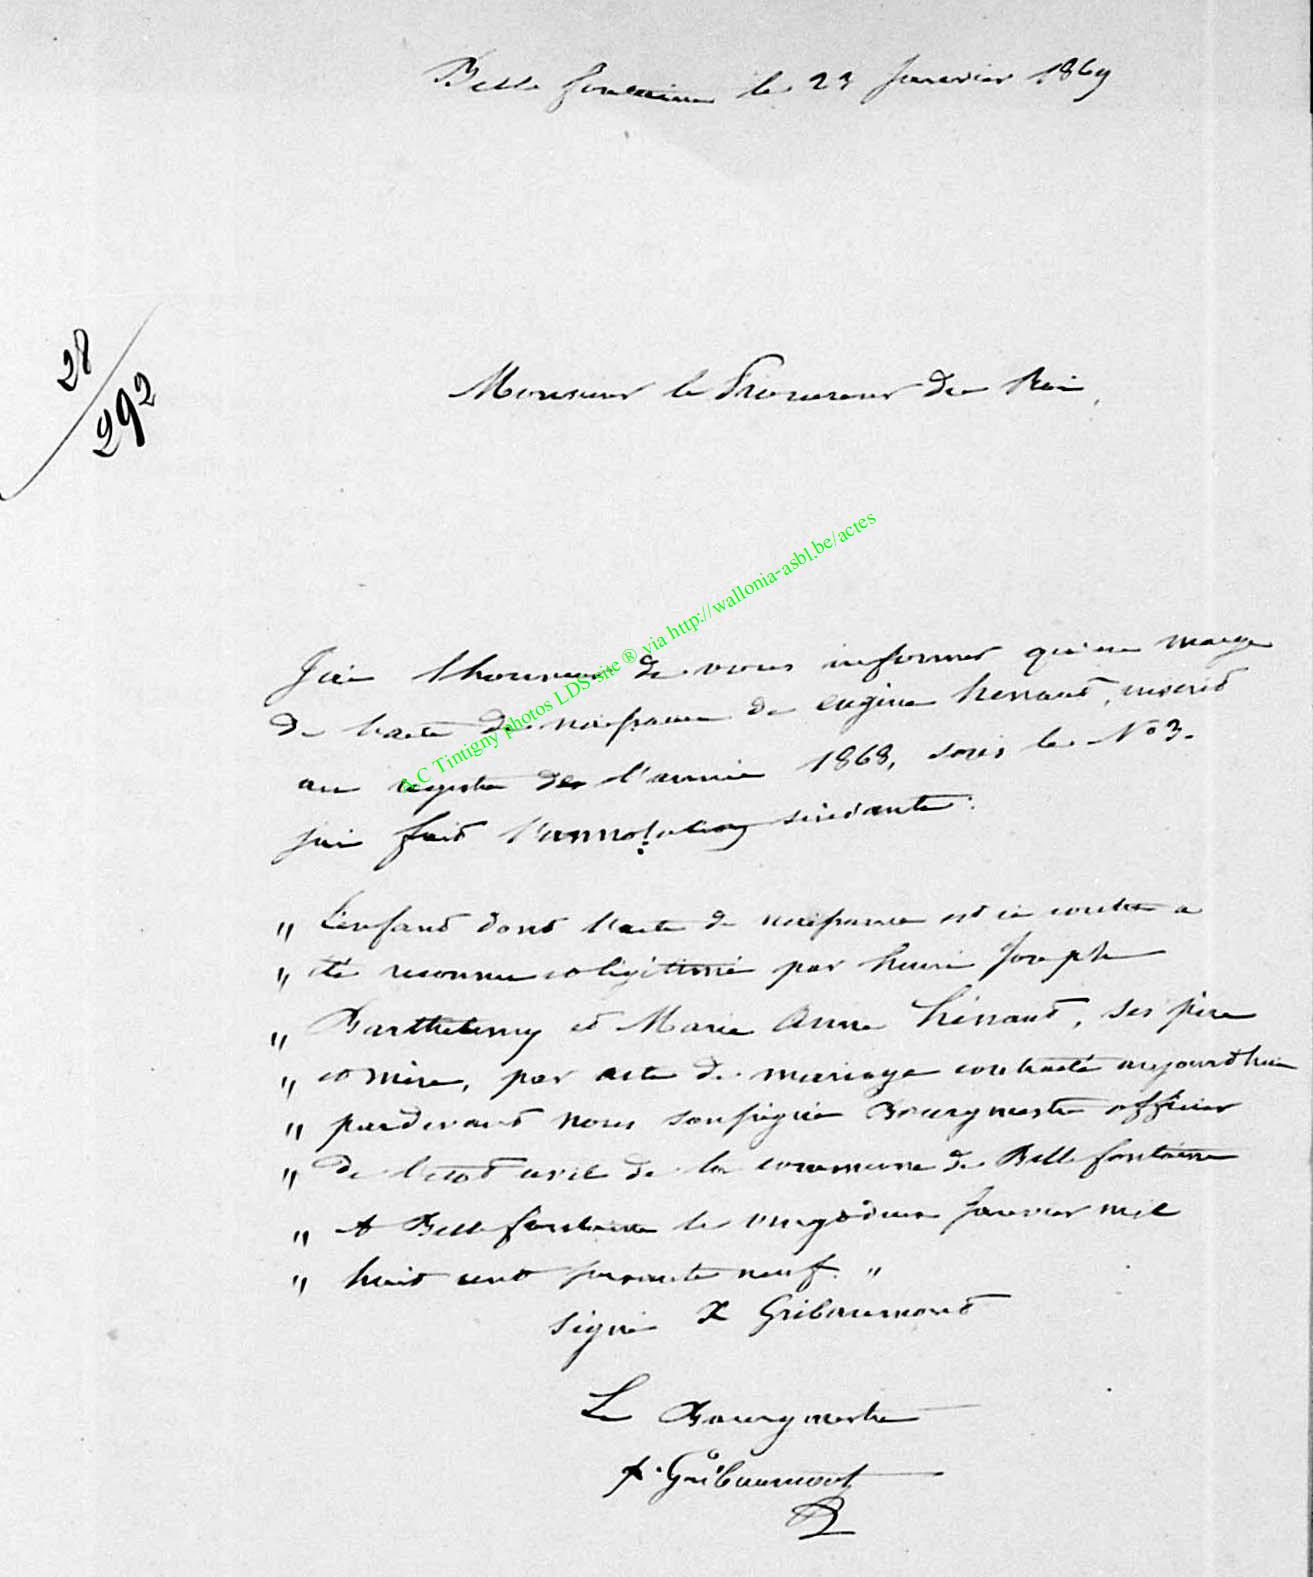 Belle fontaine le 23 Janvier 1869
28/292
Monsieur le Procureur du Roi,
A.C Tintigny photos LDS-site ® via http://wallonia-asbl.be/actes
J'ai l'honneur de vous informer qu'en marge
de l'acte de naissance de Eugène Henaud, inscrit
au registre de l'année 1868, sous le No 3.
j'ai fait l'annotation suivante :
" L'enfant dont l'acte de naissance est ci contre a
" été reconnu et légitimé par henri Joseph
" Barthelemy et Marie Anne Hénaud, ses père
" et mère, par acte de mariage contracté aujourdhui
" pardevant nous soussigné Bourgmestre officier
" de l'état civil de la commune de Bellefontaine
" A Bellefontaine le vingt deux Janvier mil
" huit cent soixante neuf. "
signé X Gribaumont
Le Bourgmestre
X. Gribaumont